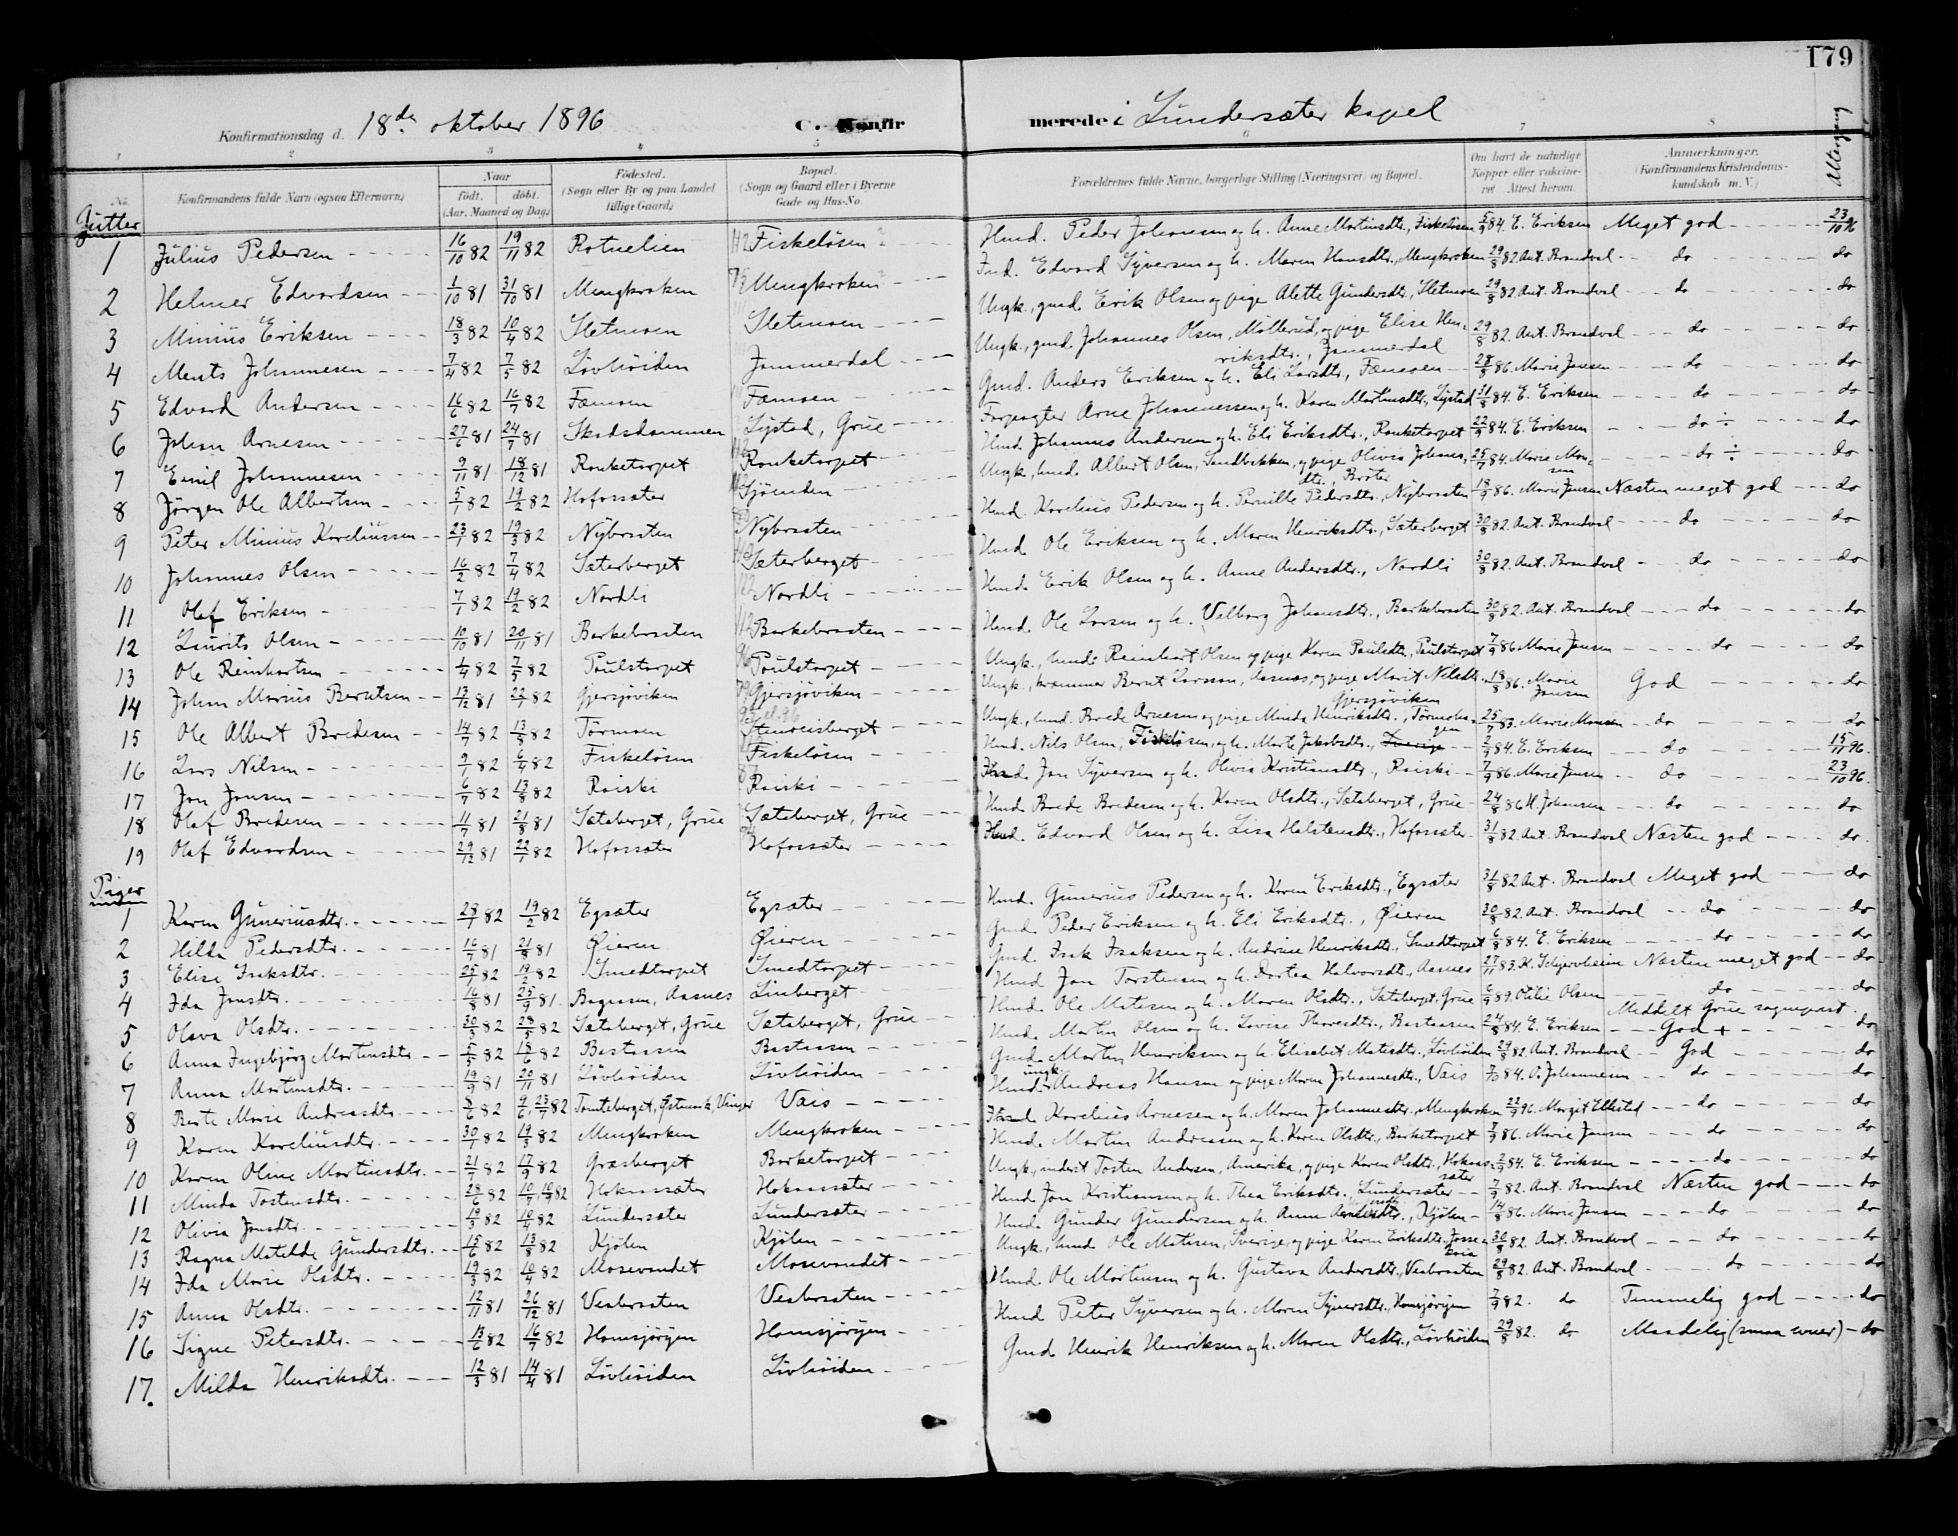 179
Konfirmationsdag d. 18de oktober 1896 C. Konfir merede i Lundersæter kapel
1 2 3 4 5 6 7 8
No. Konfirmandens fulde Navn (ogsaa Efternavn) Naar født. døbt. (Aar, Maaned og Dag) Fødested. (Sogn eller By og paa Landet tillige Gaard) Bopæl. (Sogn og Gaard eller i Byerne Gade og Hus-No. Forældrenes fulde Navne, borgerlige Stilling (Næringsvei) og Bopæl. Om havt de naturlige Kopper eller vakcineret. Attest herom. Anmærkninger. (Konfirmandens Kristendomskundskab m. V.) Altergang
Gutter
1 Julius Pedersen 16/10 82 19/11 82 Rotnelien Fiskeløsen Hmd. Peder Johansen og h. Anne Martinsdtr., Fiskeløsen 5/9 84. E. Eriksen Meget god 23/10 96
2 Helmer Edvardsen 1/10 81 31/10 81 Mengkroken Mengkroken Ind. Edvard Syversen og h. Maren Hansdtr., Mengkroken 29/8 82 Ant. Brandvol do do
3 Minius Eriksen 18/3 82 10/4 82 Sletmoen Sletmoen Ungk., gmd. Erik Olsen og pige Alette Gundersdtr., Sletmoen 29/8 82 Ant. Brandvol do do
4 Ments Johannesen 7/4 82 7/5 82 Løvhøiden Jammerdal Ungk., gmd. Johannes Olsen, Møllerud, og pige Elise Henriksdtr., Jammerdal 29/8 82. Ant. Brandvol do do
5 Edvard Andersen 16/6 82 16/7 82 Fæmoen Fæmoen Gmd. Anders Eriksen og h. Eli Larsdtr., Fæmoen 28/8 86. Marie Jensen do do
6 Johan Arnesen 27/6 81 24/7 81 Skadsdammen Lystad, Grue Forpagter Arne Johannessen og h. Karen Martinsdtr., Lystad 31/8 84. E. Eriksen do do
7 Emil Johannesen 9/11 81 18/12 81 Ronketorpet Ronketorpet Hmd. Johannes Andersen og h. Eli Eriksdtr., Ronketorpet 22/9 84. E. Eriksen do ÷ do
8 Jørgen Ole Albertsen 5/1 82 19/2 82 Hofossæter Sjøenden Ungk., hmd. Albert Olsen, Sandbakken, og pige Olivia Johansdtr., Bråter 25/7 84. Marie Monsen do ÷ do
9 Peter Minius Koreliussen 23/1 82 19/3 82 Nybraaten Nybraaten Hmd. Korelius Pedersen og h. Pernille Pedersdtr., Nybraaten 18/9 86. Marie Jensen Næsten meget god do
10 Johannes Olsen 16/2 82 7/4 82 Sæterberget Sæterberget Hmd. Ole Eriksen og h. Maren Henriksdtr., Sæterberget 30/8 82. Ant. Brandvol do do
11 Olaf Eriksen 7/1 82 19/2 82 Nordli Nordli Hmd. Erik Olsen og h. Anne Andersdtr., Nordli 30/8 82. Ant. Brandvol do do
12 Laurits Olsen 10/10 81 20/11 81 Barkebraaten Barkebraaten Hmd. Ole Larsen og h. Valborg Johansdtr., Barkebraaten 30/8 82. Ant. Brandvol do do
13 Ole Reinhartsen 4/4 82 7/5 82 Poulstorpet Poulstorpet Ungk., hmd. Reinhart Olsen og pige Karen Paulsdtr., Paulstorpet 7/9 86 Marie Jensen do do
14 Johan Marius Berntsen 13/12 81 22/1 82 Gjersjøviken Gjersjøviken Ungk., kræmmer Bernt Larsson, Aasnæs, og pige Marit Nilsdtr., Gjersjøviken 18/8 86. Marie Jensen God do
15 Ole Albert Bredesen 14/7 82 13/8 82 Tørmoen Stenreisberget Ungk., hmd. Brede Arnesen og pige Minda Henriksdtr., 25/7 83. Marie Monsen do do
16 Lars Nilsen 9/1 82 6/4 82 Fiskeløsen Fiskeløsen Hmd. Nils Olsen, Fiskeløsen, og h. Marte Jakobsdtr., Sverige 2/9 84. E. Eriksen do 15/11 96.
17 Jon Jonsen 6/7 82 13/8 82 Roiski Roiski Hmd. Jon Syversen og h. Olivia Kristiansdtr., Roiski 7/9 86. Marie Jensen do 23/10 96.
18 Olaf Bredesen 11/7 81 21/8 81 Sætaberget, Grue Sætaberget, Grue Hmd. Brede Bredesen og h. Karen Olsdtr., Sætaberget, Grue 24/8 86 K. Johansen do do
19 Olaf Edvardsen 29/12 81 22/1 82 Hofossæter Hofossæter Hmd. Edvard Olsen og h. Lisa Halstensdtr., Hofossæter 31/8 82 Ant. Brandvol Næsten god do.
Piger
1 Karen Gunerius­dtr. 28/1 82 19/2 82 Egsæter Egsæter Hmd. Gunerius Pedersen og h. Karen Eriksdtr., Egsæter 31/8 82 Ant. Brandvol Meget god do
2 Hilda Pedersdtr. 16/7 81 21/8 81 Øieren Øieren Gmd. Peder Eriksen og h. Eli Eriksdtr., Øieren 30/8 82. Ant. Brandvol do do
3 Elise Isaksdtr. 25/1 82 19/2 82 Smedtorpet Smedtorpet Gmd. Isak Isaksen og h. Andrine Henriksdtr., Smedtorpet 6/8 84. E. Eriksen do do
4 Ida Jonsdtr. 16/8 81 25/9 81. Bagmoen, Aasnes Linberget Hmd Jon Torstensen og h. Dortea Halvorsdtr., Aasnes 27/11 83. K. Schjerverheim Næsten meget god do
5 Olava Olsdtr. 30/3 82 28/5 82 Sætaberget, Grue Sætaberget, Grue Hmd. Ole Matisen og h. Maren Olsdtr., Sætaberget, Grue 6/9 89. Otilie Olsen do Meddelt Grue sogneprest. do
6 Anna Ingebjørg Martinsdtr. 5/5 82 18/6 82 Bastaasen Bastaasen Hmd. Martin Olsen og h. Lovise Thoresdtr., Bastaasen 24/8 84. E. Eriksen God + do
7 Anna Martinsdtr. 19/9 81 20/11 81 Løvhøiden Løvhøiden Gmd. Martin Henriksen og h. Elisabet Matisdtr., Løvhøiden 29/8 82 Ant. Brandvol God do
8 Berte Marie Andreasdtr. 5/6 82 9/6, 23/7 82 Tomteberget, Østmark, Vinger Vais Hmd. ungk. Andreas Hansen og pige Maren Johannesdtr., Vais 7/10 84. O. Johannesen do do
9 Karen Koreliusdtr. 30/1 82 19/3 82 Mengkroken Mengkroken Hmd. Korelius Arnesen og h. Maren Johannesdtr., Mengkroken 22/9 96. Margit Ellestad do do
10 Karen Oline Martinsdtr. 21/7 82 17/9 82 Græsberget Barketorpet Hmd. Martin Andreasen og h. Karen Olsdtr., Barketorpet 7/9 86. Marie Jensen do do
11 Minda Tostensdtr. 28/6 82 10/7, 10/9 82 Hokaassæter Hokaassæter Ungk., inderst Tosten Andersen, Amerika, og pige Karen Olsdtr., Hokaassæter 2/9 84. E. Eriksen do do
12 Olivia Jonsdtr. 19/3 82 10/4 82 Lundersæter Lundersæter Hmd. Jon Kristiansen og h. Thea Eriksdtr., Lundersæter 7/9 82. Ant. Brandvol Næsten god do
13 Ragna Matilde Gundersdtr. 15/6 82 13/8 82 Kjølen Kjølen Hmd. Gunder Gundersen og h. Anne , Kjølen 14/8 86. Marie Jensen do do
14 Ida Marie Olsdtr. 19/3 82 10/4 82 Mosevandet Mosevandet Ungk., hmd. Ole Matisen, Sverige, og pige Karen Eriksdtr. 30/8 82. Ant. Brandvol do do
15 Anna Olsdtr. 12/11 81 26/12 81 Veabraaten Veabraaten Hmd. Ole Mortensen og h. Gustava Andersdtr., Veabraaten 29/8 82 Ant. Brandvol do do
16 Signe Petersdtr. 13/6 82 16/7 82 Homsjørgen Homsjørgen Hmd Peter Syversen og h. Maren Syversdtr., Homsjørgen 7/9 82. do Temmelig god do
17. Milda Henriksdtr. 12/3 81 14/4 81 Løvhøiden Løvhøiden Gmd. Henrik Henriksen og h. Maren Olsdtr., Løvhøiden 29/8 82. do Maadelig (smaa evner) do